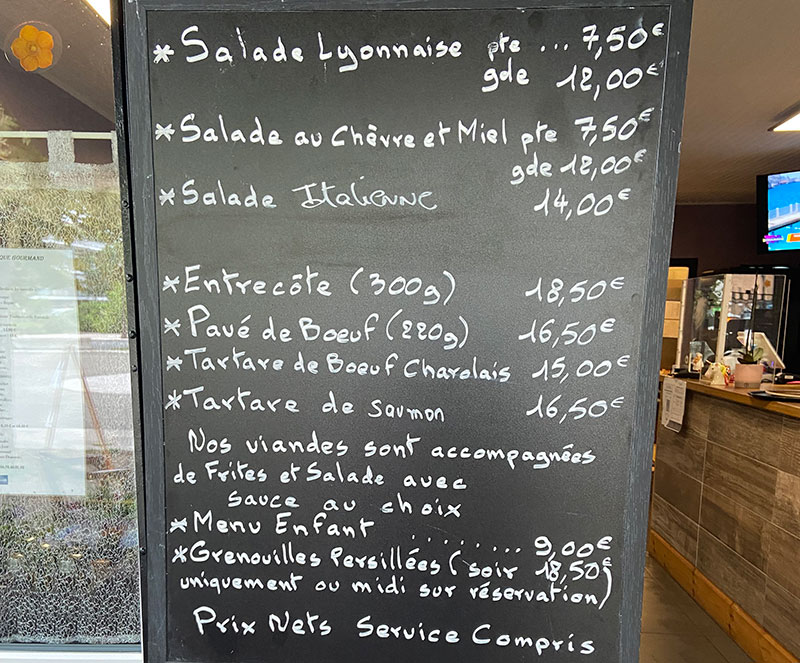 * Salade Lyonnaise pte ... 7,50€
gde 12,00€
* Salade au Chèvre et Miel pte 7,50€
gde 12,00€
* Salade Italienne 14,00€
* Entrecôte (300g) 18,50€
* Pavé de Boeuf (220g) 16,50€
* Tartare de Boeuf Charolais 15,00€
* Tartare de saumon 16,50€
Nos viandes sont accompagnées
de Frites et Salade avec
sauce au choix
* Menu Enfant ........ 9,00€
* Grenouilles Persillées (soir 18,50€
uniquement ou midi sur réservation)
Prix Nets Service Compris
QUE GOURMAND